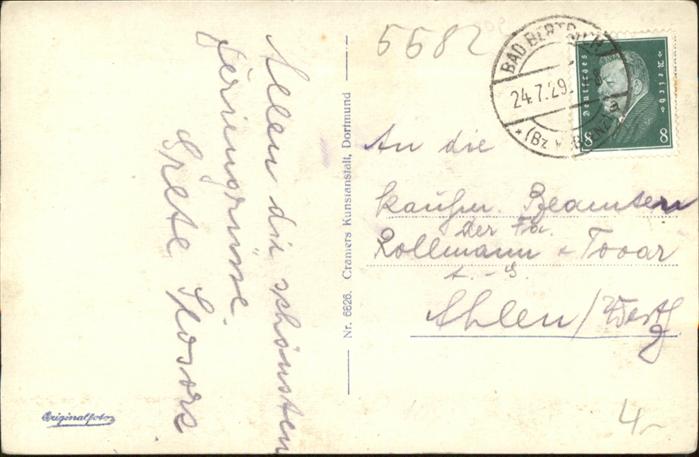 5582
Allen die schönsten
Feriengrüsse.
Grete
Nr. 6626. Cramers Kunstanstalt, Dortmund
BAD BERTRICH
24.7.29. 8-
* (Bz. a
Deutsches Reich
8 8
An die
kaufm. Beamten
der Fa.
Rollmann & Tovar
Ahlen / Westf
Originalfoto
4-